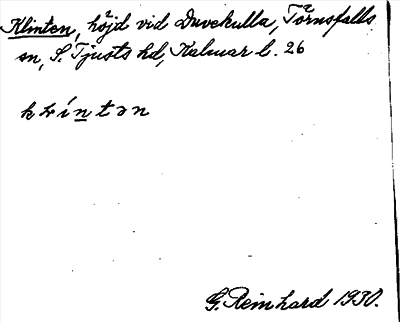 Klinten, höjd vid Duvekulla, Törnsfalls
sn, S. Tjusts hd, Kalmar l. 26
klíntən
G. Reinhard 1930.